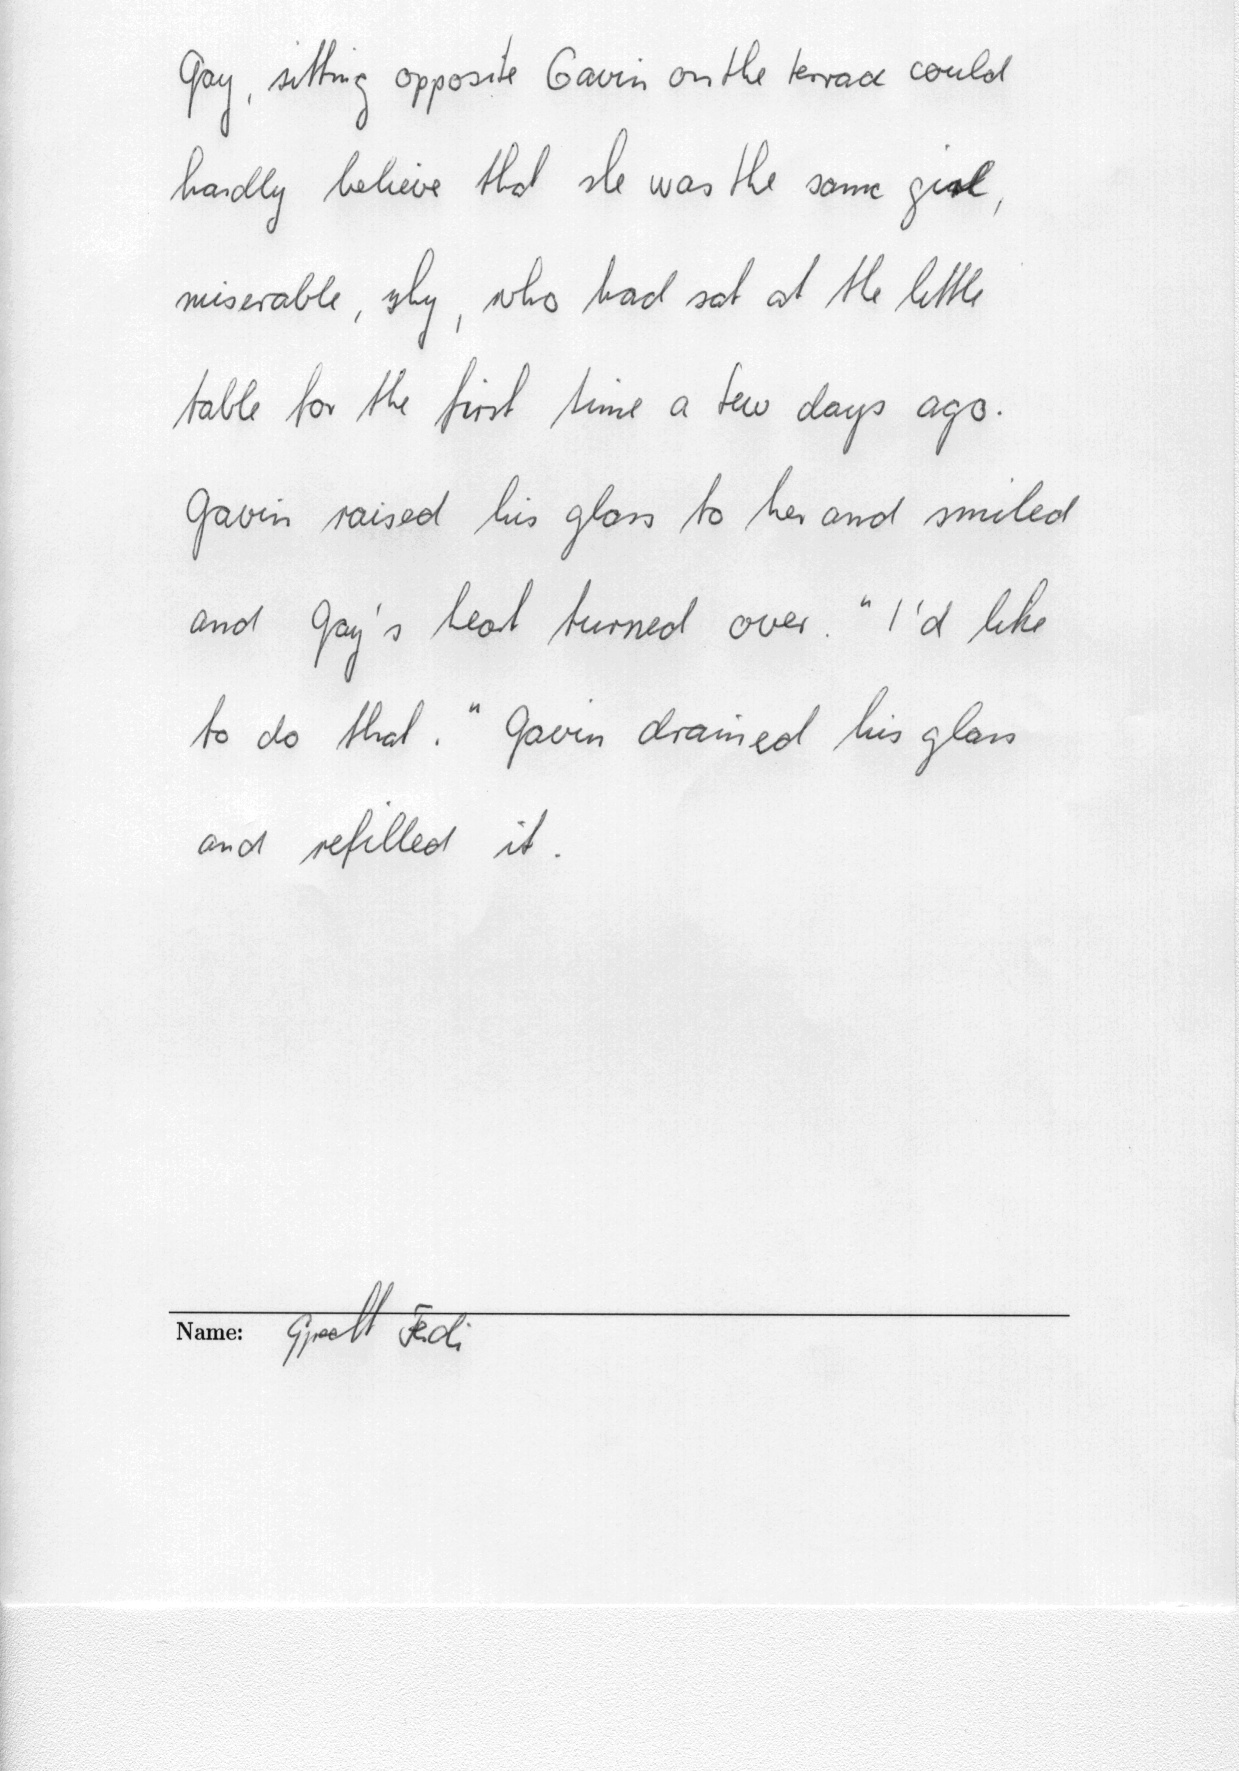 Gay, sitting opposite Gavin on the terrace could
hardly believe that she was the same girl,
miserable, shy, who had sat at the little
table for the first time a few days ago.
Gavin raised his glass to her and smiled
and Gay's heart turned over. "I'd like
to do that." Gavin drained his glass
and refilled it.
Name: